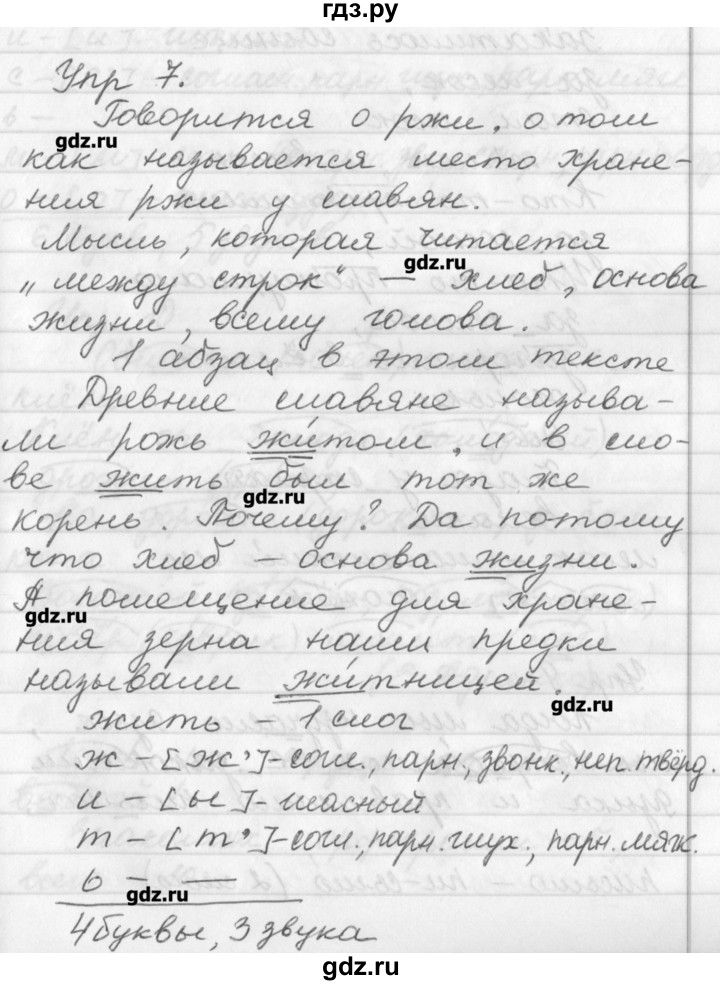 гдз.ру
Упр 7.
Говорится о ржи, о том
гдз.ru
как называется место хране-
ния ржи у славян.
Мысль, которая читается
гдз.ru
„между строк“ — хлеб, основа
жизни, всему голова.
1 абзац в этом тексте
Древние славяне называ-
ли рожь жи́том, и в сло-
ве жить был тот же
gdz.ru
корень. Почему? Да потому
что хлеб – основа жизни.
А помещение для хране-
gdz.ru
ния зерна наши предки
называли жи́тницей.
gdz.ru
жить – 1 слог
ж – [ж’] – согл., парн., звонк., неп. твёрд.
и – [ы] – гласный
т – [т’] – согл., парн. глух., парн. мягк.
ь – —
gdz.ru
4 буквы, 3 звука
gdz.ru